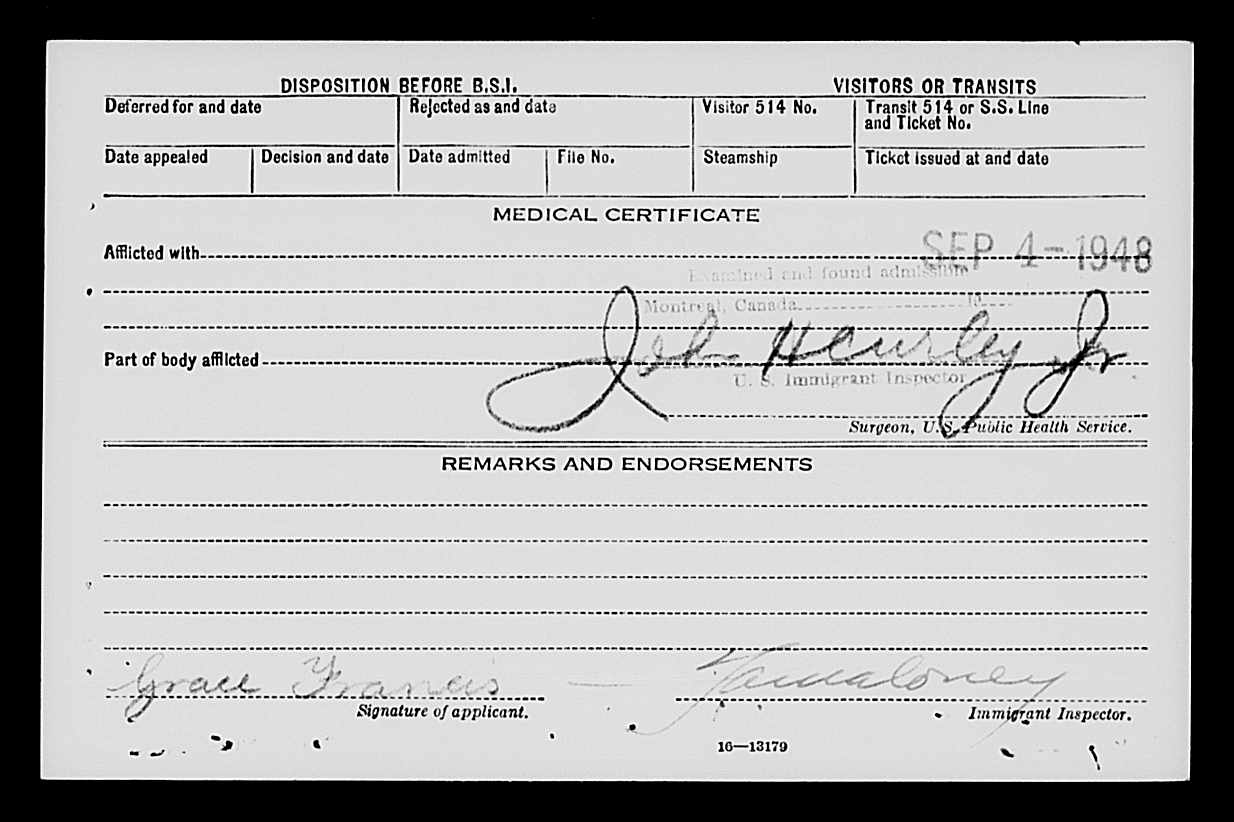 DISPOSITION BEFORE B.S.I. VISITORS OR TRANSITS
Deferred for and date Rejected as and date Visitor 514 No. Transit 514 or S.S. Line
and Ticket No.
Date appealed Decision and date Date admitted File No. Steamship Ticket issued at and date
MEDICAL CERTIFICATE
Afflicted with
SEP 4-1948
Examined and found admissible
Montreal, Canada 19
John Hcurley Jr
Part of body afflicted
U. S. Immigrant Inspector
Surgeon, U.S. Public Health Service.
REMARKS AND ENDORSEMENTS
Grace Francis
Maloney
Signature of applicant. Immigrant Inspector.
16—13179